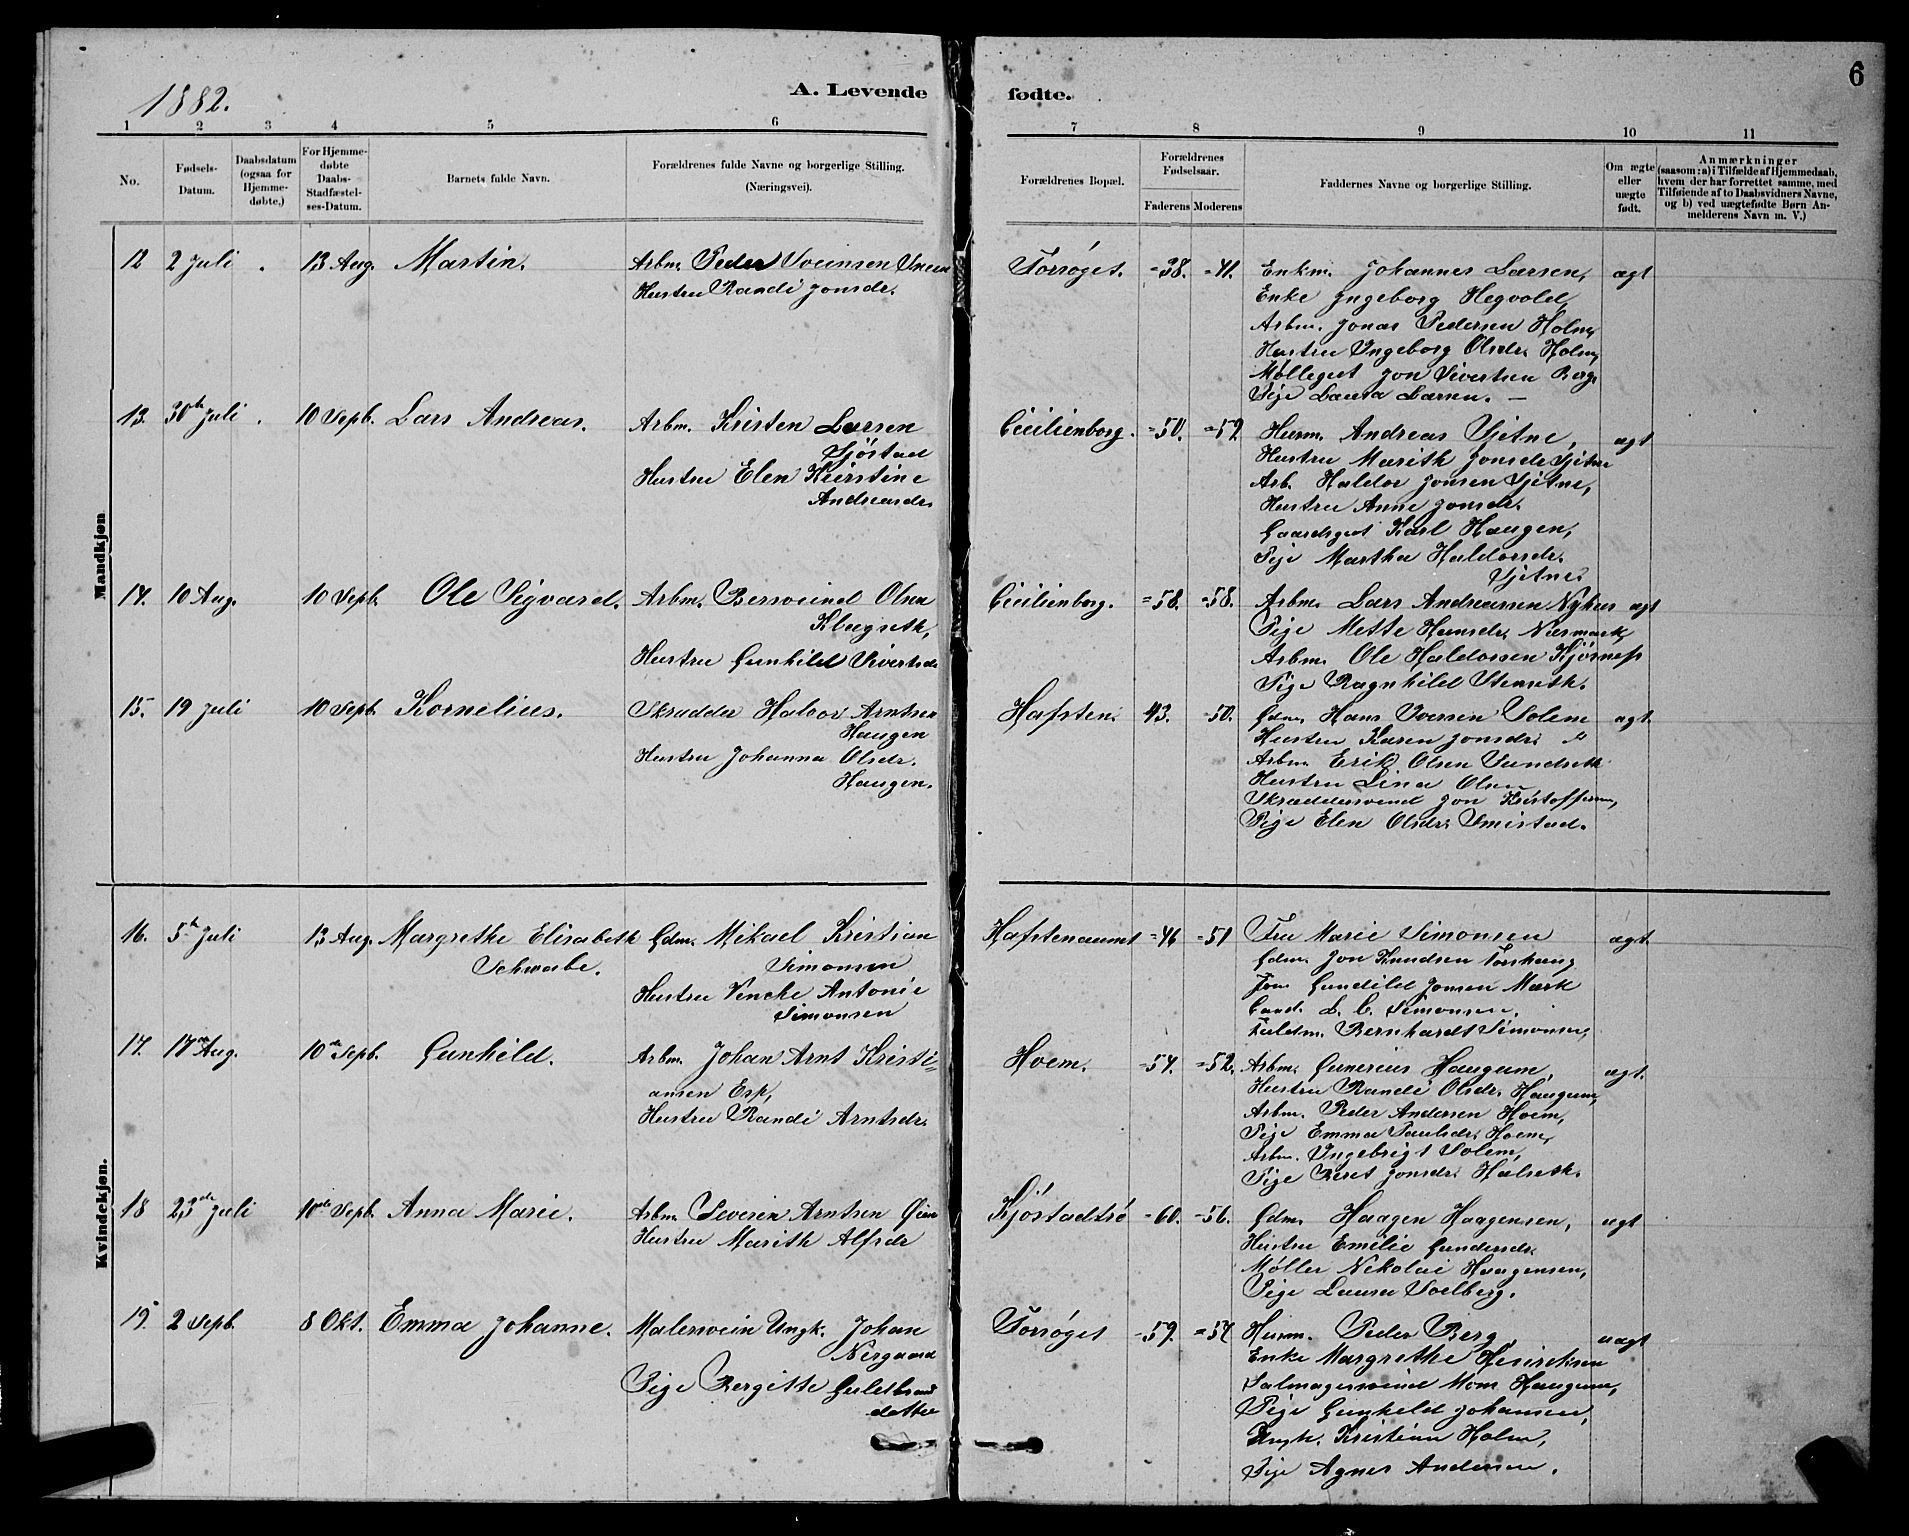 6
1882.
A. Levende fødte.
1 2 3 4 5 6 7 8 9 10 11
No.
Fødsels-
Datum.
Daabsdatum
(ogsaa for
Hjemme-
døbte.)
For Hjemme-
døbte
Daabs-
Stadfæstel-
ses-Datum.
Barnets fulde Navn.
Forældrenes fulde Navne og borgerlige Stilling.
(Næringsvei).
Forældrenes Bopæl.
Forældrenes
Fødselsaar.
Faderens Moderens
Faddernes Navne og borgerlige Stilling.
Om ægte
eller
uægte
født.
Anmærkninger
(saasom: a) i Tilfælde af Hjemmedaab,
hvem der har forrettet samme, med
Tilføiende af to Daabsvidners Navne,
og b) ved uægtefødte Børn An-
melderens Navn m. V.)
Mandkjøn
12 2 Juli . 13 Aug. Martin.
Arbm. Peder Sveinsen
Hustru Randi Jonsdr.
Forsøget. =38. =41.
Enkm. Johannes Larsen,
Enke Ingeborg Hegvold,
Arbm. Jonas Pedersen Holm,
Hustru Ingeborg Olsdr. Holm,
Møllegut Jon Sivertsen Berg,
Pige Laura Larsen. —
ægt
13. 30te Juli . 10 Sepb. Lars Andreas.
Arbm. Kristen Larsen
Sjøstad
Hustru Elen Kirstine
Andreasdr.
Cicilienborg. =50. =52
Husm. Andreas Tjetne,
Hustru Marith Jonsdr Tjetne
Arb. Haldor Jonsen Tjetne,
Hustru Anne Jonsdr.
Gaardsgut Karl Haugen,
Pige Martha Haldorsdr.
Tjetne
ægt
14. 10 Aug. 10 Sepb. Ole Sigvard.
Arbm. Bersveind Olsen
Klugseth,
Hustru Gunhild Sivertsdr
Cicilienborg. =58. =58.
Arbm. Lars Andreassen Nyhus
Pige Mette Hansdr. Næsmark,
Arbm. Ole Haldorsen Kjøsnes
Pige Ragnhild Stenseth.
ægt
15. 19 Juli 10 Sepb. Kornelius.
Skrædder Halvor Arntsen
Haugen
Hustru Johanna Olsdr.
Haugen.
Hafsten. 43. =50.
Gdm. Hans Iversen Solem
Hustru Karen Jonsdr. "
Arbm. Erik Olsen Sundseth
Hustru Lina Olsen
Skræddersvend Jon Kristoffersen,
Pige Elen Olsdr. Smistad.
ægt.
Kvindekjøn.
16. 5te Juli 13 Aug. Margrethe Elisabeth
Schwabe.
Gdm. Mikael Kristian
Simonsen
Hustru Vencke Antonie
Simonsen
Hafstenaunet =46 =51
Fru Marie Simonsen
Gdm. Jon Knudsen Torshaug
Frue Gunhild Jonsen Mærk
Cand. L. C. Simonsen.
Fuldm. Bernhardt Simonsen,
ægt.
17. 17de Aug. 10de Sepb. Gunhild.
Arbm. Johan Arnt Kristi=
ansen Esp,
Hustru Randi Arntsdr.
Hoem. =54. =52.
Arbm. Gunerius Haugum,
Hustru Randi Olsdr. Haugum,
Arbm. Peder Andersen Hoem,
Pige Emma Paulsdr. Hoem,
Arbm. Ingebrigt Solem,
Pige Beret Jonsdr. Halseth.
ægt.
18 23de Juli 10de Sepb. Anna Marie.
Arbm. Severin Arntsen Øien
Hustru Marith Alfsdr
Kjøstadtrø =60. =56.
Gdm. Haagen Haagensen,
Hustru Emilie Gundersdr.
Møller Nikolai Haagensen,
Pige Laura Solberg.
ægt
19. 2 Sepb. 8 Okt. Emma Johanne.
Malersvein Ungk. Johan
Nergaard
Pige Bergitte Guldbrands
datter
Forsøget -59. =54
Husm. Peder Berg,
Enke Margrethe Henricksen
Salmagersveind Mons Haugum,
Pige Gunhild Johansen,
Ungk. Kristian Holm,
Pige Agnes Andersen.
uægt